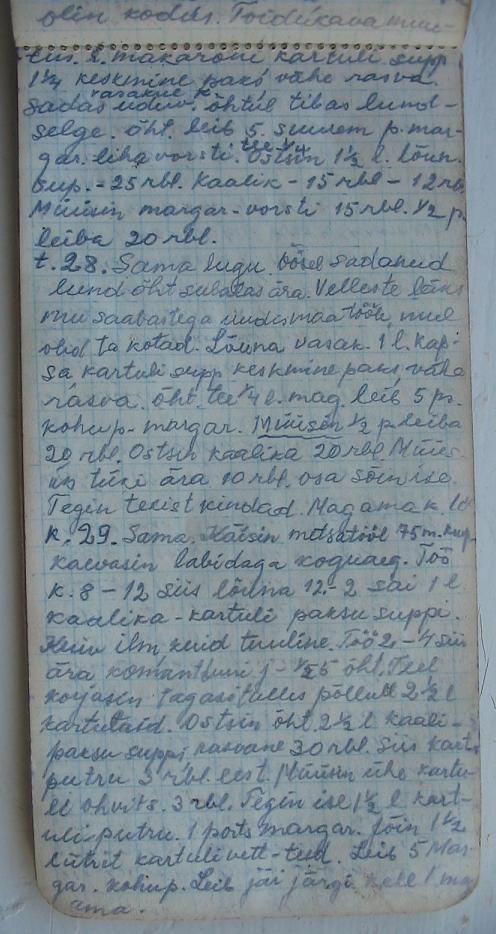 olin kodus. Toidukava muu-
tus. 2. makaroni kartuli supp
1¼ keskmine paks, vähe rasva.
Sadas udu. õhtul tibas lund-
selge. Õht. leib 5. suurem p. mar-
gar. liha vorsti. tee ¼ Ostsin 1½ l. lõun.
sup. - 25 rbl. Kaalik - 15 rbl - 12 rb
Müüsin margar-vorsti 15 rbl. ½ p.
leiba 20 rbl.
t. 28. Sama lugu. öösel sadanud
lund õht sulatas ära. Velleste läks
mu saabastega uudismaa tööle, mul
olid ta kotad. Lõuna vasak. 1 l. kap-
sa kartuli supp keskmine paks, vähe
rasva. õht. tee ¼ l. mag. leib 5 ps.
kohup- margar. Müüsin ½ p leiba
20 rbl. Ostsin kaalika 20 rbl Müü-
sin tüki ära 10 rbl. osa sõin ise.
Tegin tekist kindad. Magama k. 10
K. 29. Sama. Käisin metsatööl 75 m. kup.
kaevasin labidaga koguaeg. Töö
k. 8 - 12 siis lõuna 12-2 sai 1 l
kaalika - kartuli paksu suppi.
Kuiv ilm, kuid tuuline. Töö 2 - 4 siis
ära komantluni j - ½5 õht. Teel
korjasin tagasitulles põllult 2½ l
kartulaid. Ostsin õht 2½ l kaali-
paksu suppi rasvane 30 rbl. Siis kart.
putru 3 rbl. eest. Müüsin ühe kartu-
li ohvits. 3 rbl. Tegin ise 1½ l kart-
uli-putru. 1 ports margar. Jõin 1½
liitrit kartuli vett-teed. Leib 5 Mar-
gar. kohup. Leib jäi järgi. Kell 1 mag
ama.